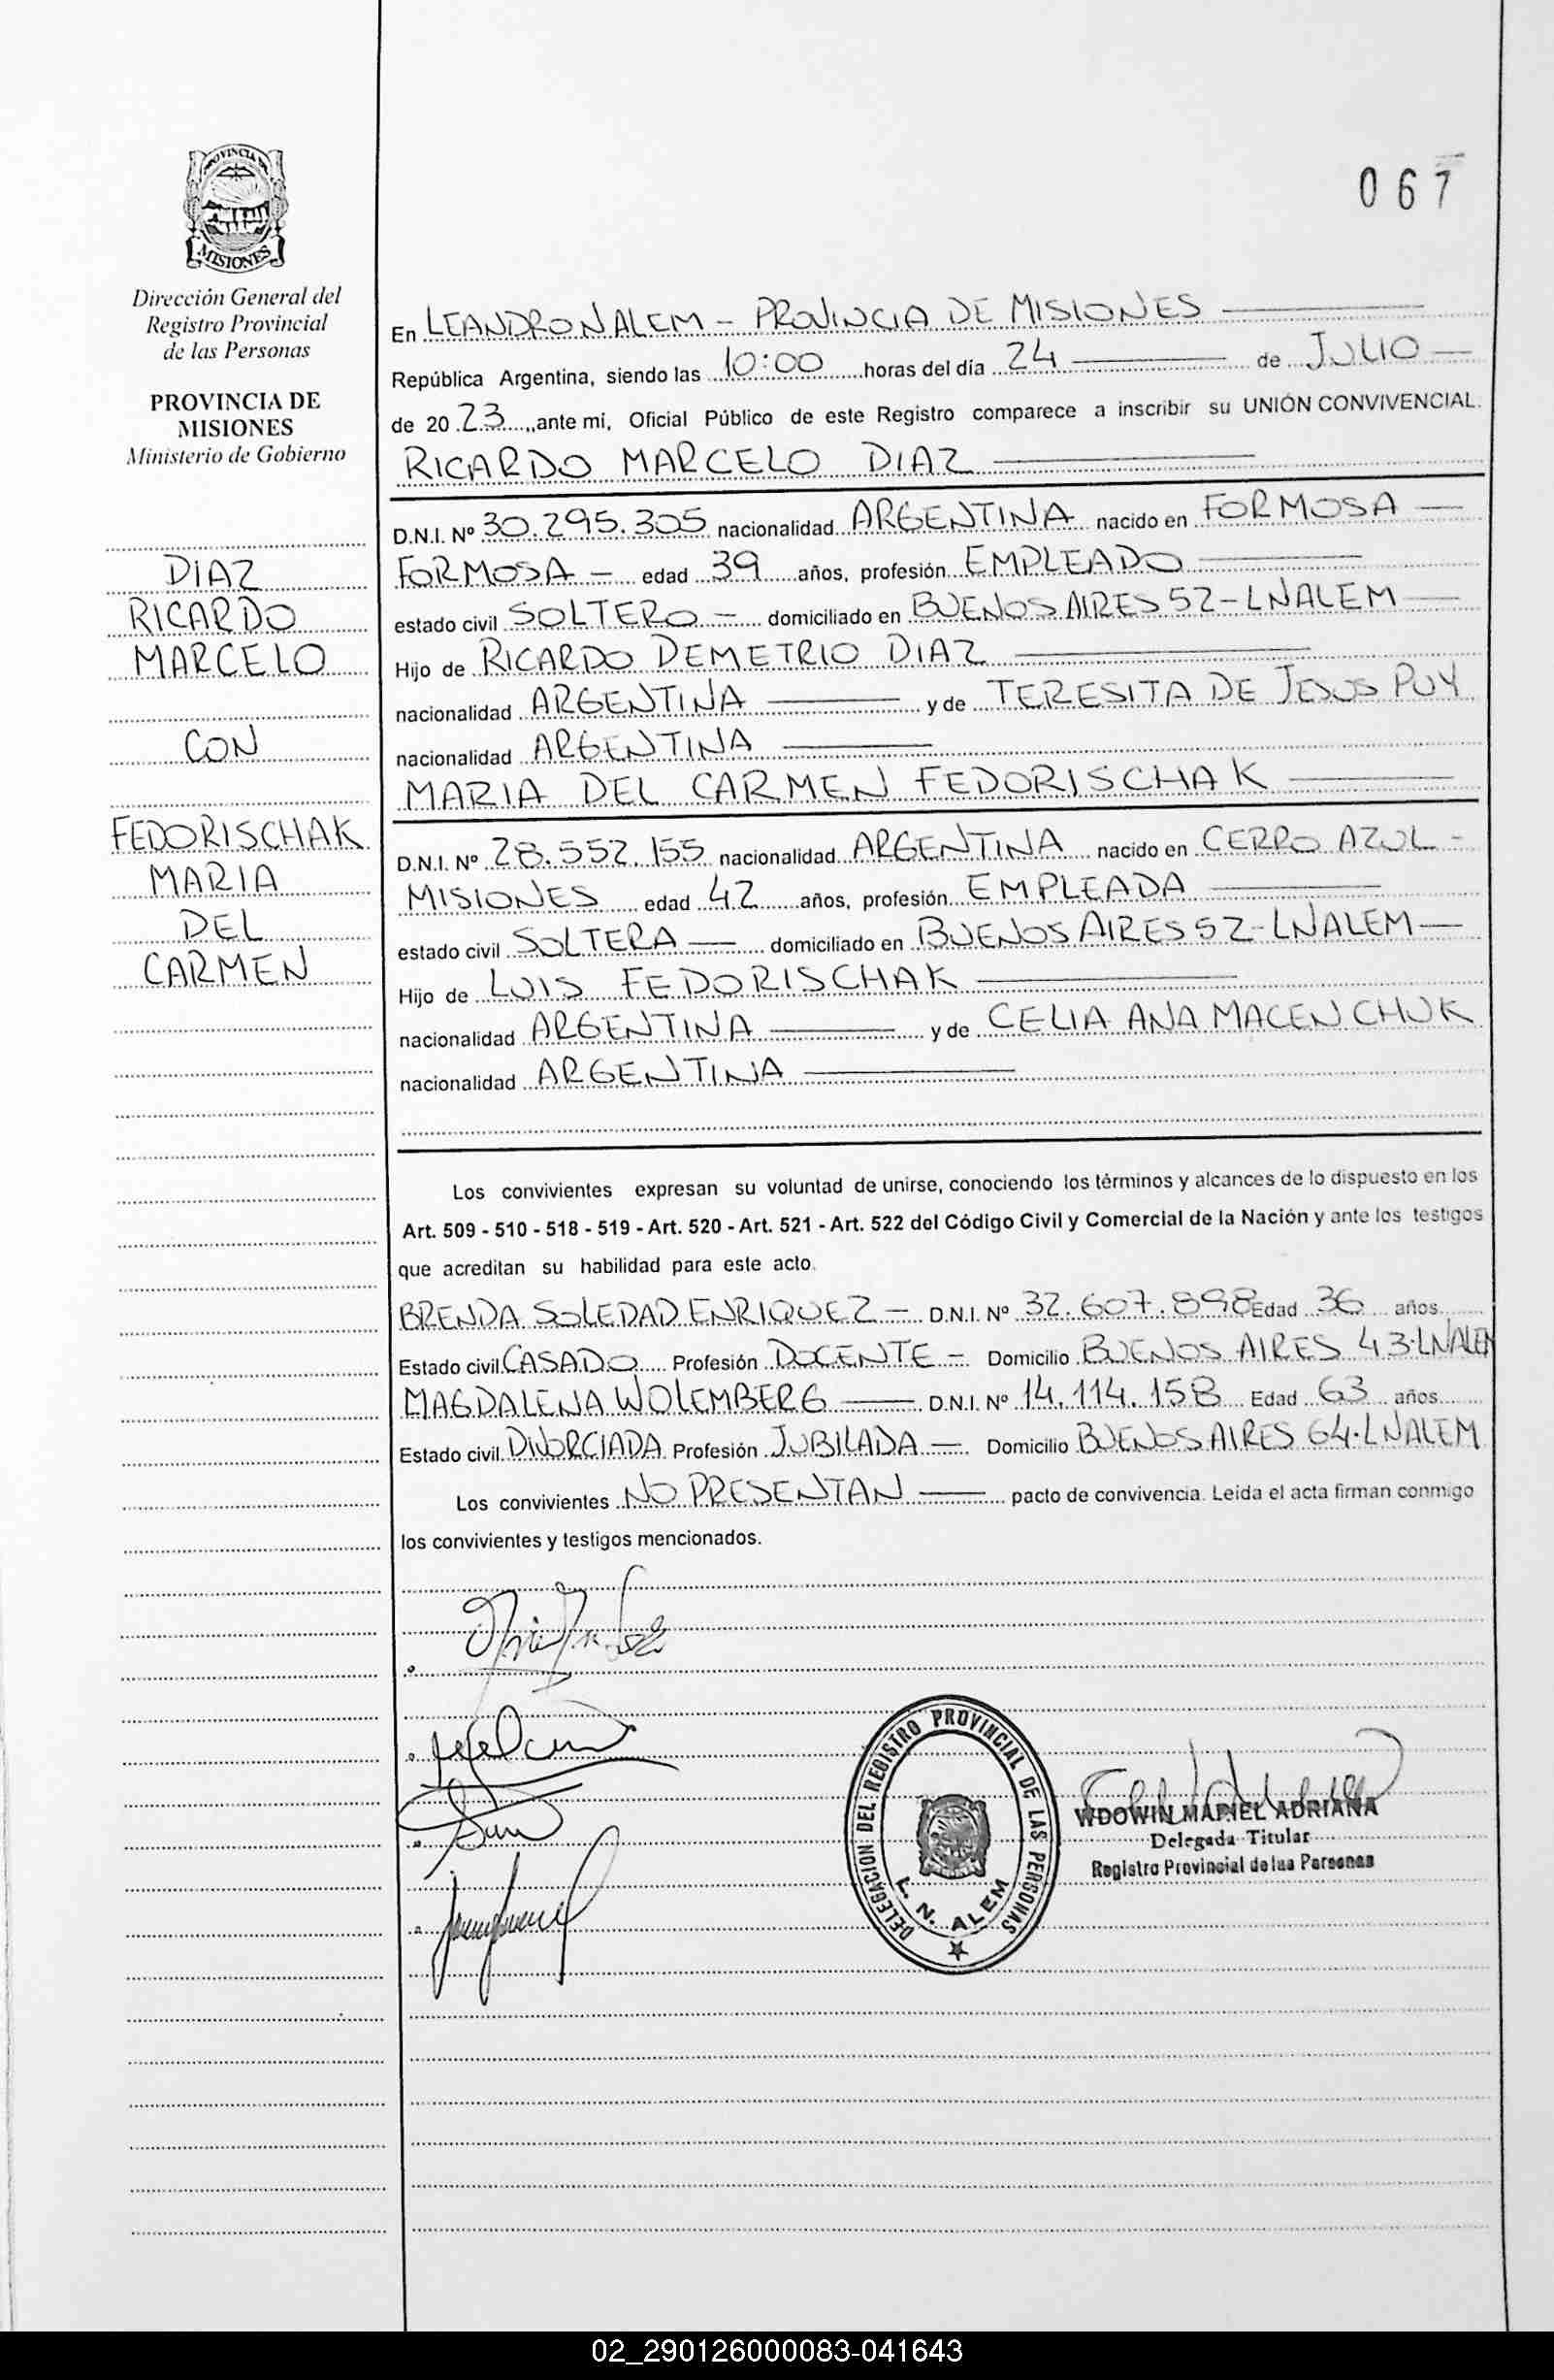 067
PROVINCIA DE
MISIONES
Dirección General del
Registro Provincial
de las Personas
PROVINCIA DE
MISIONES
Ministerio de Gobierno
DIAZ
RICARDO
MARCELO
CON
FEDORISCHAK
MARIA
DEL
CARMEN
En LEANDRO N ALEM - PROVINCIA DE MISIONES
República Argentina, siendo las 10:00 horas del día 24 de JULIO
de 20 23, ante mi, Oficial Público de este Registro comparece a inscribir su UNIÓN CONVIVENCIAL.
RICARDO MARCELO DIAZ
D.N.I. Nº 30.295.305 nacionalidad ARGENTINA nacido en FORMOSA
FORMOSA - edad 39 años, profesión EMPLEADO
estado civil SOLTERO - domiciliado en BUENOS AIRES 52-LNALEM
Hijo de RICARDO DEMETRIO DIAZ
nacionalidad ARGENTINA y de TERESITA DE JESUS PUY
nacionalidad ARGENTINA
MARIA DEL CARMEN FEDORISCHAK
D.N.I. Nº 28.552.155 nacionalidad ARGENTINA nacido en CERRO AZUL -
MISIONES edad 42 años, profesión EMPLEADA
estado civil SOLTERA - domiciliado en BUENOS AIRES 52-LNALEM
Hijo de LUIS FEDORISCHAK
nacionalidad ARGENTINA y de CELIA ANA MACENCHUK
nacionalidad ARGENTINA
Los convivientes expresan su voluntad de unirse, conociendo los términos y alcances de lo dispuesto en los
Art. 509 - 510 - 518 - 519 - Art. 520 - Art. 521 - Art. 522 del Código Civil y Comercial de la Nación y ante los testigos
que acreditan su habilidad para este acto.
BRENDA SOLEDAD ENRIQUEZ - D.N.I. Nº 32.607.898 Edad 36 años
Estado civil CASADO Profesión DOCENTE - Domicilio BUENOS AIRES 43-LNALEM
MAGDALENA WOLEMBERG - D.N.I. Nº 14.114.158 Edad 63 años
Estado civil DIVORCIADA Profesión JUBILADA - Domicilio BUENOS AIRES 64-LNALEM
Los convivientes NO PRESENTAN pacto de convivencia. Leida el acta firman conmigo
los convivientes y testigos mencionados.
DELEGACION DEL REGISTRO PROVINCIAL DE LAS PERSONAS
L. N. ALEM
WDOWIN MARIEL ADRIANA
Delegada Titular
Registro Provincial de las Personas
02_290126000083-041643